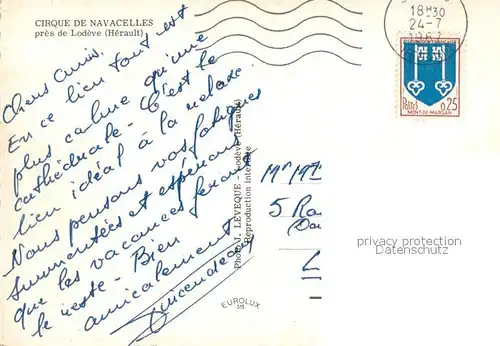 CIRQUE DE NAVACELLES
près de Lodève (Hérault)
Chers amis.
En ce lieu tout est
plus calme qu'une
cathédrale - C'est le
lieu idéal à la relaxe
Nous pensons vos fatigues
surmontées et espérons
que les vacances feront
le reste - Bien
amicalement
Photo J. LEVEQUE - Lodève (Hérault)
Reproduction interdite
EUROLUX
18H30
24-7
Postes 0,25
MONT-DE-MARSAN
5 R
privacy protection
Datenschutz